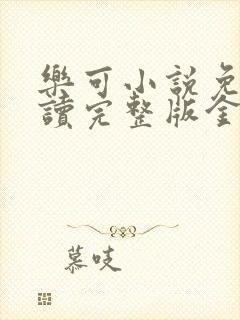 樂可小說免
讀完整版全
慕吱